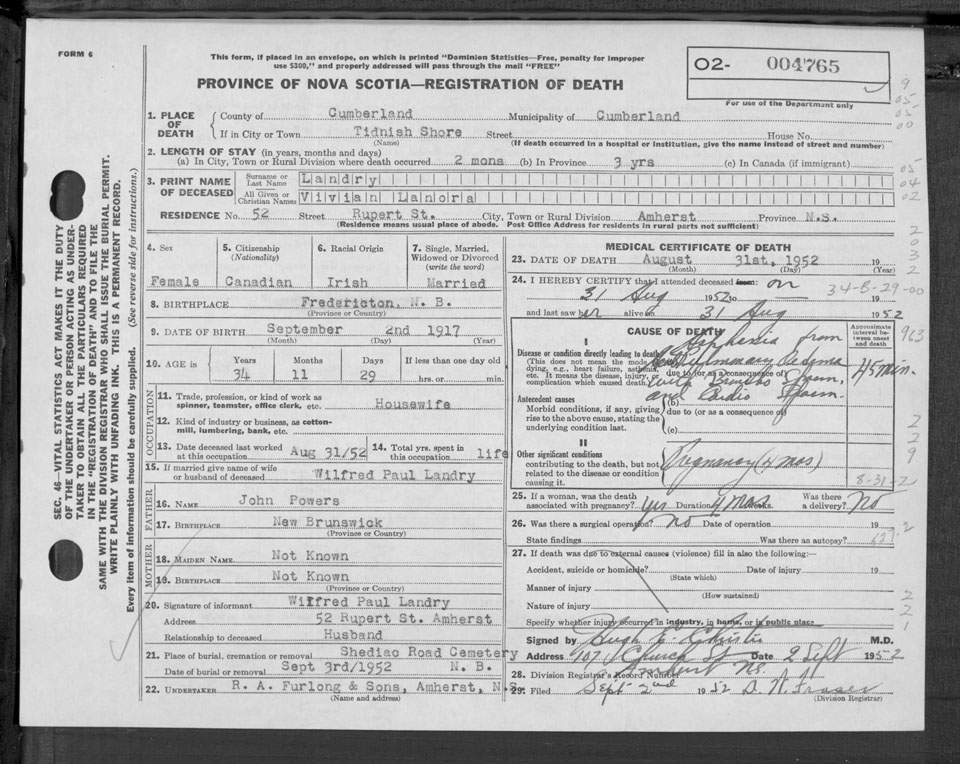 FORM 6
This form, if placed in an envelope, on which is printed "Dominion Statistics—Free, penalty for improper
use $300," and properly addressed will pass through the mail "FREE"
O2- 004765
For use of the Department only
PROVINCE OF NOVA SCOTIA—REGISTRATION OF DEATH
1. PLACE OF DEATH
County of Cumberland Municipality of Cumberland
If in City or Town Tidnish Shore Street House No.
(Name) (If death occurred in a hospital or institution, give the name instead of street and number)
2. LENGTH OF STAY (in years, months and days)
(a) In City, Town or Rural Division where death occurred 2 mons (b) In Province 3 yrs (c) In Canada (if immigrant)
3. PRINT NAME OF DECEASED
Surname or Last Name Landry
All Given or Christian Names Vivian Lanora
RESIDENCE No. 52 Street Rupert St. City, Town or Rural Division Amherst Province N.S.
(Residence means usual place of abode. Post Office Address for residents in rural parts not sufficient)
4. Sex
Female
5. Citizenship (Nationality)
Canadian
6. Racial Origin
Irish
7. Single, Married, Widowed or Divorced (write the word)
Married
8. BIRTHPLACE Fredericton, N. B.
(Province or Country)
9. DATE OF BIRTH September 2nd 1917
(Month) (Day) (Year)
10. AGE is
Years Months Days If less than one day old
34 11 29 hrs. or min.
OCCUPATION
11. Trade, profession, or kind of work as
spinner, teamster, office clerk, etc. Housewife
12. Kind of industry or business, as cotton-
mill, lumbering, bank, etc.
13. Date deceased last worked
at this occupation Aug 31/52
14. Total yrs. spent in
this occupation life
15. If married give name of wife
or husband of deceased Wilfred Paul Landry
FATHER
16. NAME John Powers
17. BIRTHPLACE New Brunswick
(Province or Country)
MOTHER
18. MAIDEN NAME Not Known
19. BIRTHPLACE Not Known
(Province or Country)
20. Signature of informant Wilfred Paul Landry
Address 52 Rupert St. Amherst
Relationship to deceased Husband
21. Place of burial, cremation or removal Shediac Road Cemetery
Date of burial or removal Sept 3rd/1952 N. B.
22. UNDERTAKER R. A. Furlong & Sons, Amherst, N.S.
(Name and address)
MEDICAL CERTIFICATE OF DEATH
23. DATE OF DEATH August 31st, 1952 19
(Month) (Day) (Year)
24. I HEREBY CERTIFY that I attended deceased from: on
31 Aug 1952 to
and last saw her alive on 31 Aug 1952
34-8-29-00
CAUSE OF DEATH
Approximate interval between onset and death
I
Disease or condition directly leading to death
(This does not mean the mode of dying, e.g., heart failure, asthenia, etc. It means the disease, injury, or complication which caused death.)
Asphyxia from
Pulmonary Oedema
due to (or as a consequence of)
with Broncho Spasm,
and Cardio Spasm.
45 min.
Antecedent causes
Morbid conditions, if any, giving rise to the above cause, stating the underlying condition last.
(b)
due to (or as a consequence of)
(c)
II
Other significant conditions
contributing to the death, but not related to the disease or condition causing it.
Pregnancy (4 mos)
8-31-2
25. If a woman, was the death
associated with pregnancy? yes Duration 4 mos. weeks. Was there
a delivery? No
26. Was there a surgical operation? No Date of operation 19
State findings Was there an autopsy?
27. If death was due to external causes (violence) fill in also the following:—
Accident, suicide or homicide? Date of injury 19
(State which)
Manner of injury
(How sustained)
Nature of injury
Specify whether injury occurred in industry, in home, or in public place
Signed by Hugh E. Christie M.D.
Address 107 Church St Date 2 Sept 1952
Amherst NS.
28. Division Registrar's Record Number
29. Filed Sept 2nd 1952 D. W. Fraser
(Division Registrar)
SEC. 46—VITAL STATISTICS ACT MAKES IT THE DUTY
OF THE UNDERTAKER OR PERSON ACTING AS UNDER-
TAKER TO OBTAIN ALL THE PARTICULARS REQUIRED
IN THE "REGISTRATION OF DEATH" AND TO FILE THE
SAME WITH THE DIVISION REGISTRAR WHO SHALL ISSUE THE BURIAL PERMIT.
WRITE PLAINLY WITH UNFADING INK. THIS IS A PERMANENT RECORD.
Every item of information should be carefully supplied. (See reverse side for instructions.)